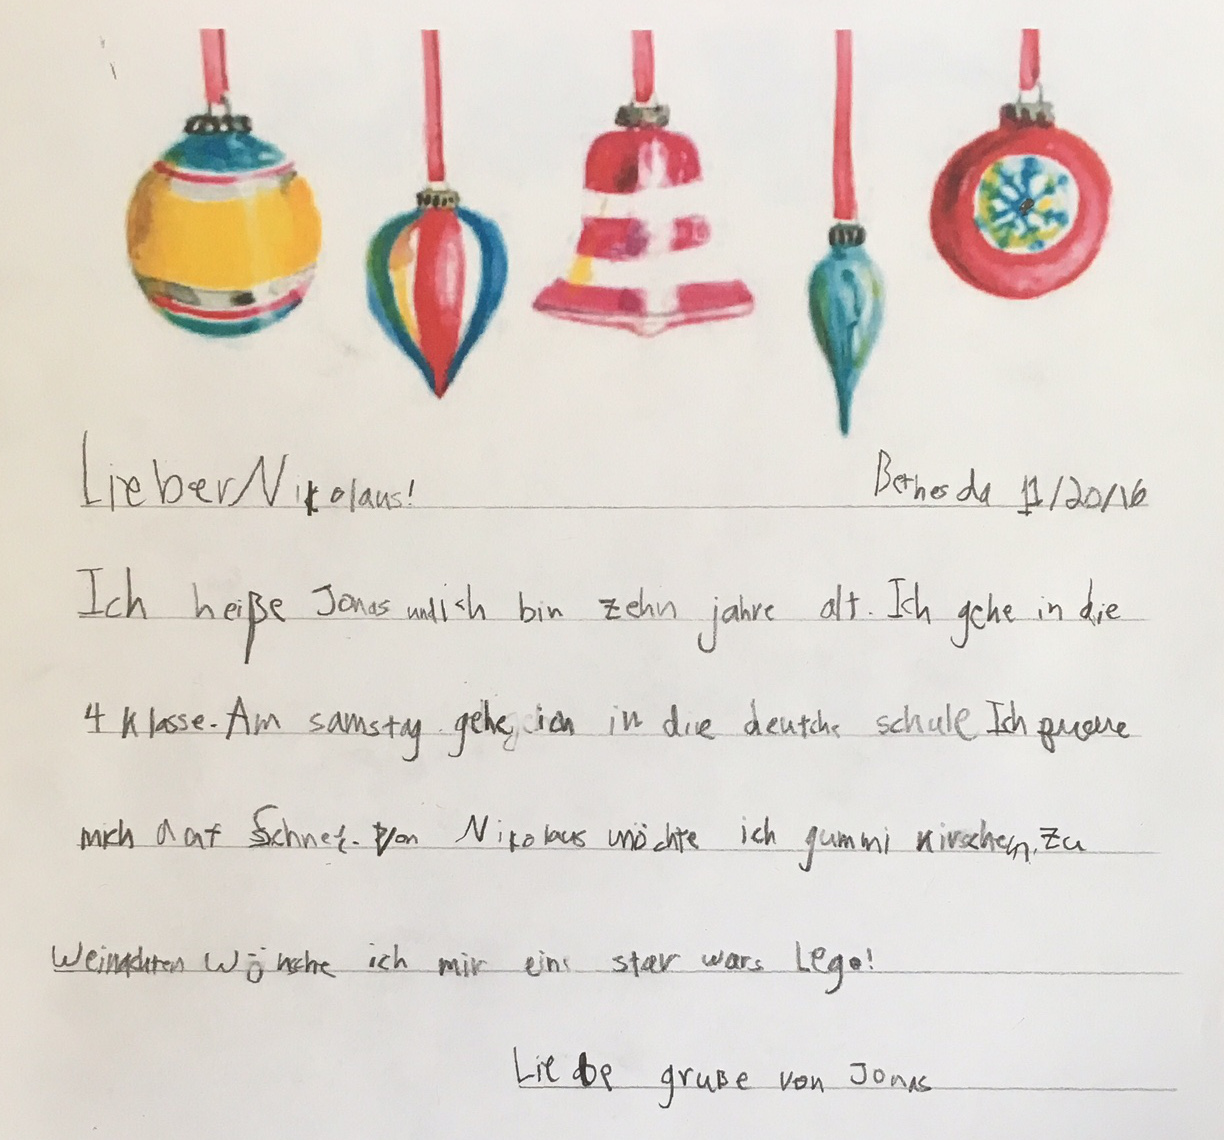 Lieber Nikolaus! Bethesda 11/20/16
Ich heiße Jonas und ich bin zehn jahre alt. Ich gehe in die
4 Klasse. Am samstag gehe ich in die deutche schule Ich
mich auf Schnee. Von Nikolaus möchte ich gummi kirschen, Zu
Weinachten Wünsche ich mir eine star wars Lego!
Liebe gruße von Jonas